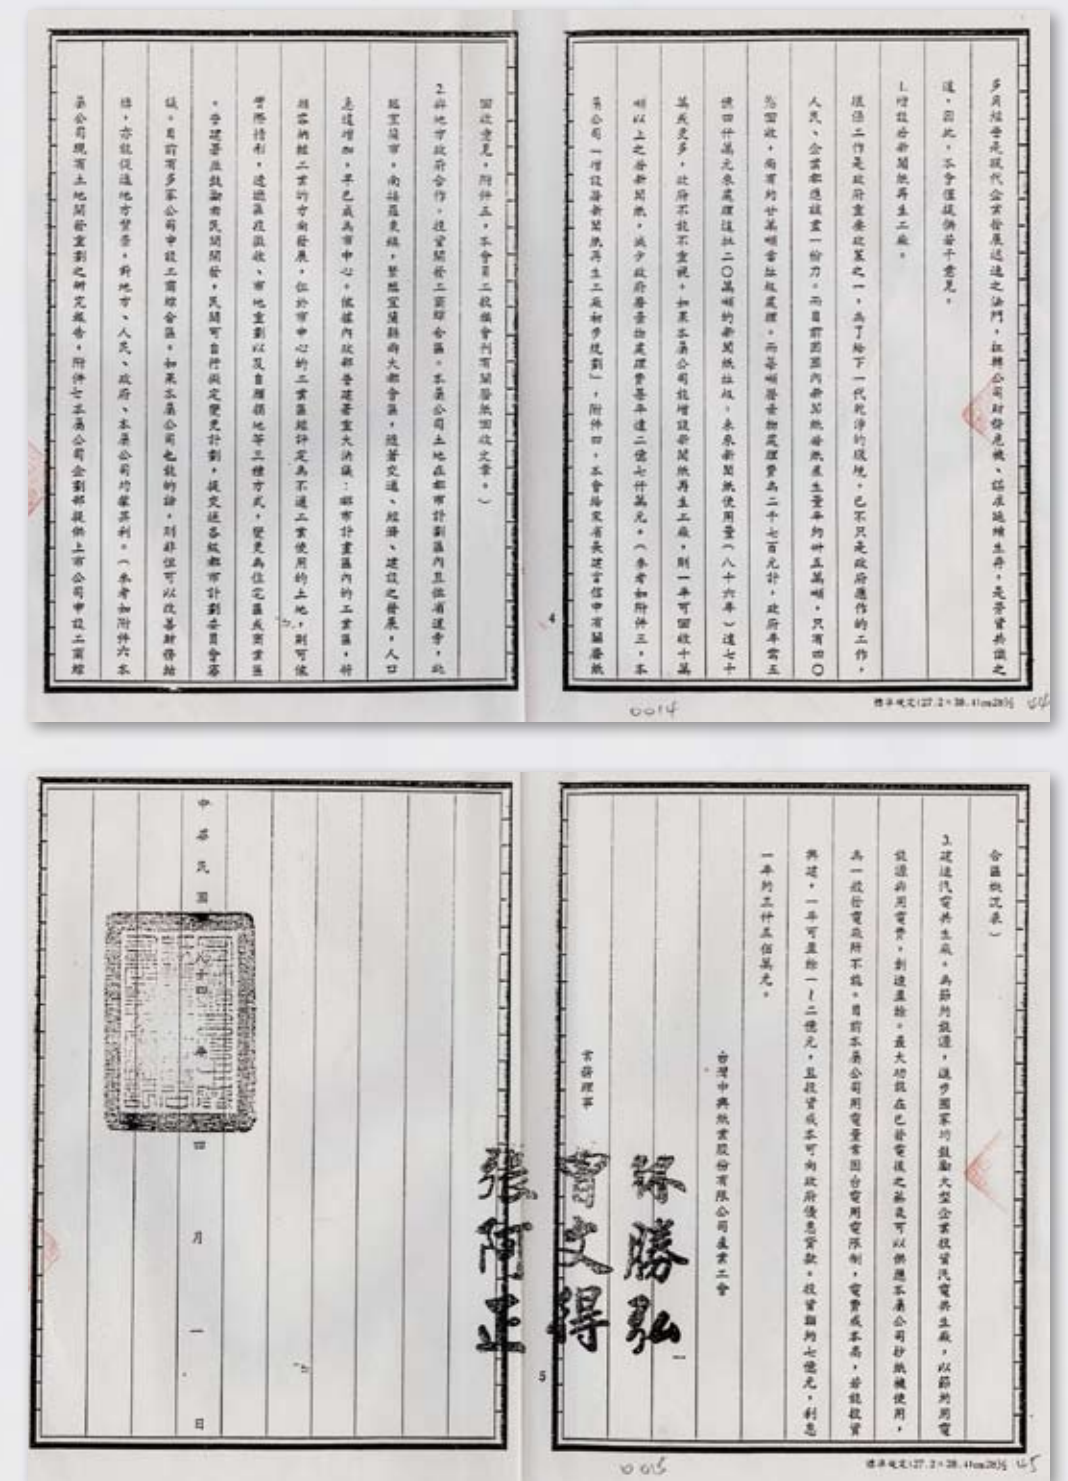 多角經營是現代企業發展迅速之法門，扭轉公司財務危機、謀求延續生存，是勞資共識之
道，因此，本會僅提供若干意見。
1.增設廢新聞紙再生工廠。
環保工作是政府重要政策之一，為了給下一代乾淨的環境，已不只是政府應作的工作，
人民、企業都應該盡一份力。而目前因國內新聞紙廢紙產生量年約卅五萬噸，只有四〇
％回收，尚有約廿萬噸當垃圾處理。而每噸廢棄物處理費為二千七百元計，政府年需五
億四仟萬元來處理這批二〇萬噸的新聞紙垃圾，未來新聞紙使用量（八十六年）達七十
萬或更多，政府不能不重視。如果本屬公司能增設新聞紙再生工廠，則一年可回收十萬
噸以上之廢新聞紙，減少政府廢棄物處理費每年達二億七仟萬元。（參考如附件三，本
屬公司「增設廢新聞紙再生工廠初步規劃」，附件四，本會給宋省長建言信中有關廢紙
4
標準規定(27.2×38.4)cm28格 44
回收意見，附件五，本會員工投稿會刊有關廢紙回收文章。）
2.與地方政府合作，投資開發工商綜合區。本屬公司土地在都市計劃區內且位省道旁，北
臨宜蘭市，南接羅東鎮，緊臨宜蘭縣兩大都會區，隨著交通、經濟、建設之發展，人口
急速增加，早已成為市中心。依據內政部營建署重大決議：都市計畫區內的工業區，將
朝容納輕工業的方向發展，位於市中心的工業區經評定為不適工業使用的土地，則可依
實際情形，透過區段徵收、市地重劃以及自願捐地等三種方式，變更為住宅區或商業區
。營建署並鼓勵由民間開發，民間可自行擬定變更計劃，提交送各級都市計劃委員會審
議。目前有多家公司申設工商綜合區。如果本屬公司也能的話，則非但可以改善財務結
構，亦能促進地方繁榮，對地方、人民、政府、本屬公司均蒙其利。（參考如附件六本
屬公司現有土地開發重劃之研究報告，附件七本屬公司企劃部提供上市公司申設工商綜
0014
合區概況表）
3.建造汽電共生廠。為節約能源，進步國家均鼓勵大型企業投資汽電共生廠，以節約用電
能源與用電費，創造盈餘。最大功能在已發電後之蒸氣可以供應本屬公司抄紙機使用，
為一般發電廠所不能。目前本屬公司用電量常因台電用電限制，電費成本高，若能投資
興建，一年可盈餘一～二億元，且投資成本可向政府優惠貸款。投資額約七億元，利息
一年約三仟五佰萬元。
台灣中興紙業股份有限公司產業工會
常務理事
林勝弘
文得
張阿正
5
標準規定(27.2×38.4)cm28格 45
中華民國八十四年四月一日
0015